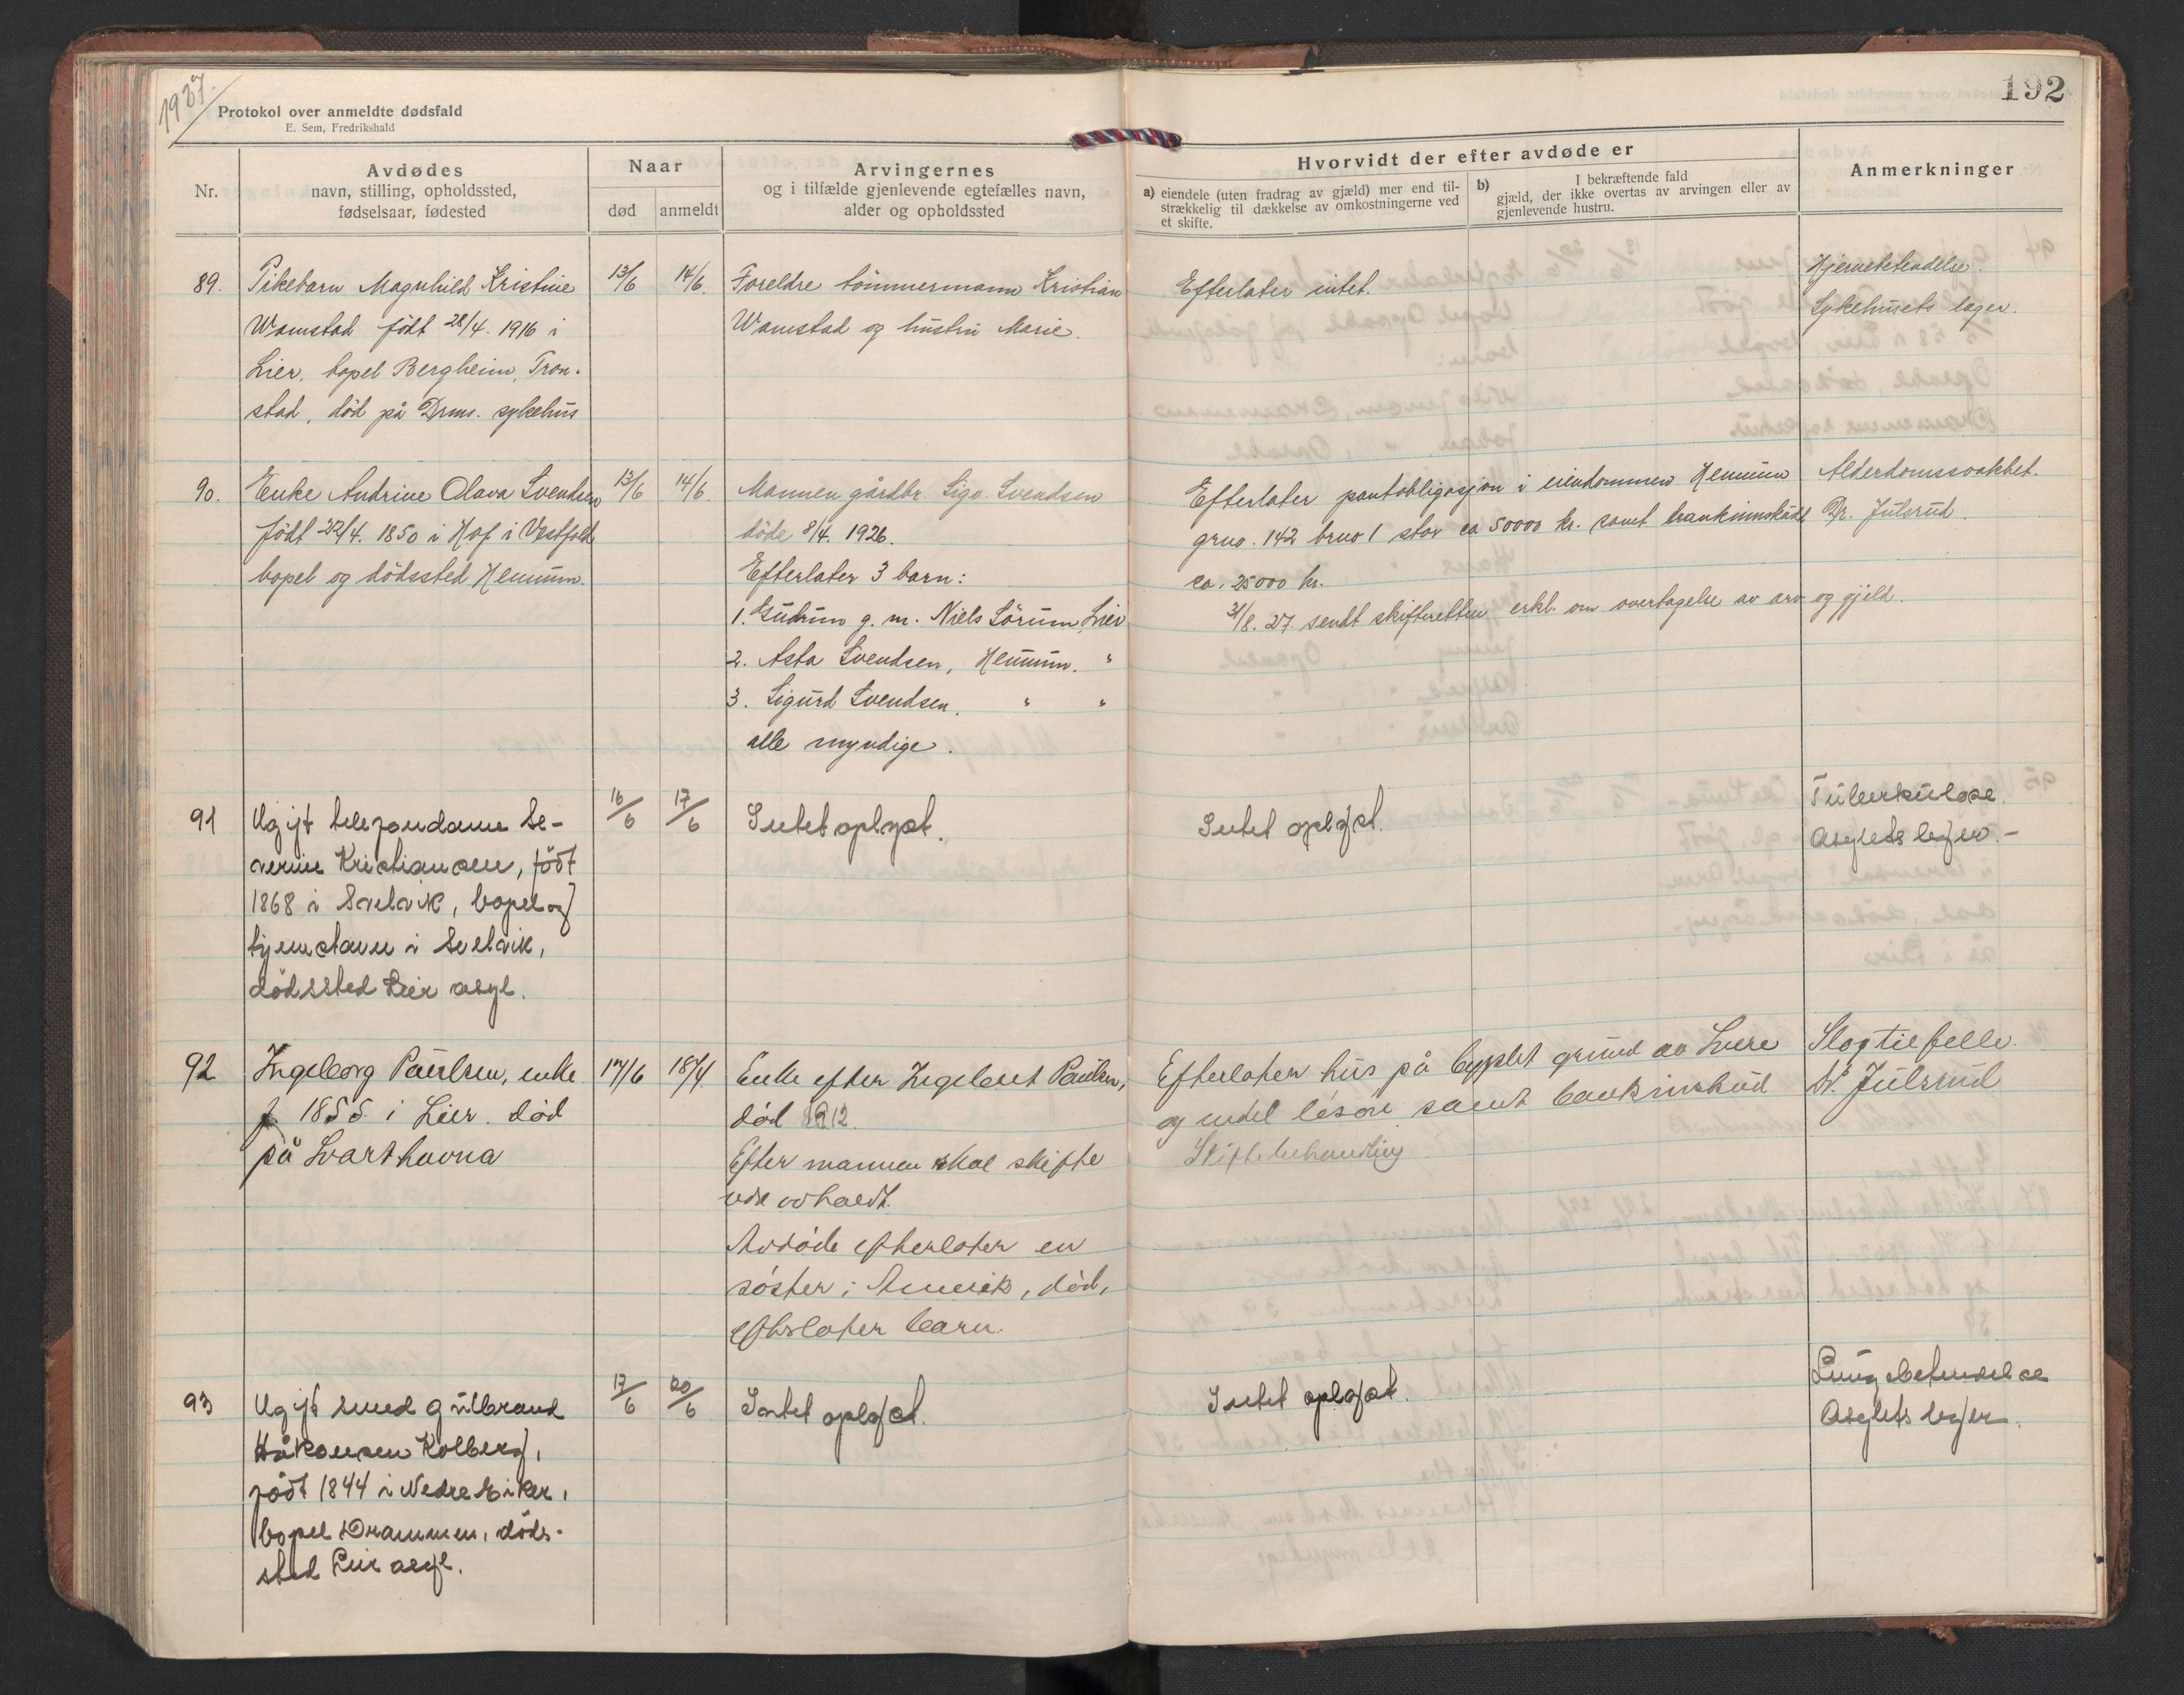 1927.
192
Protokol over anmeldte dødsfald
E. Sem, Fredrikshald
Nr.
Avdødes
navn, stilling, opholdssted,
fødselsaar, fødested
Naar
død
anmeldt
Arvingernes
og i tilfælde gjenlevende egtefælles navn,
alder og opholdssted
Hvorvidt der efter avdøde er
a) eiendele (uten fradrag av gjæld) mer end til-
strækkelig til dækkelse av omkostningerne ved
et skifte.
b) I bekræftende fald
gjæld, der ikke overtas av arvingen eller av
gjenlevende hustru.
Anmerkninger
89.
Pikebarn Magnhild Kristine
Wamstad født 28/4. 1916 i
Lier, bopel Bergheim, Tron-
stad, död på Drms. sykehus
13/6
14/6.
Foreldre tömmermann Kristian
Wamstad og hustru Marie.
Efterlater intet.
Hjernebetendelse.
Sykehusets læger.
90.
Enke Andrine Olava Svendsen
født 22/4. 1850 i Hof i Vestfold
bopel og dödssted Hennum.
13/6
14/6
Mannen gårdbr. Sigv. Svendsen
döde 8/4. 1926.
Efterlater 3 barn:
1. Gudrun g. m. Niels Sörum, Lier
2. Asta Svendsen, Hennum. "
3. Sigurd Svendsen. " "
alle myndige.
Efterlater pantobligasjon i eiendommen Hennum
grno. 142 brno 1 stor ca 50000 kr. samt bankinnskudd
ca. 25000 kr.
31/8. 27. sendt skifteretten erkl. om overtagelse av arv og gjeld.
Alderdomssvakhet.
Dr. Julsrud.
91
Ugift telefondame Se-
verine Kristiansen, födt
1868 i Svelvik, bopel og
hjemstavn i Svelvik,
dödssted Lier asyl.
16/6
17/6
Intet oplyst.
Intet oplyst.
Tuberkulose.
Asylets læger. -
92
Ingeborg Paulsen, enke
f. 1855 i Lier. död
på Svarthavna
17/6
18/4.
Enke efter Ingebret Paulsen,
död 1912.
Efter mannen skal skifte
være avholdt.
Avdöde efterlater en
söster i Amerik, död,
efterlater barn.
Efterlater hus på bygslet grund av Lvere
og endel lösöre samt bankinskud
Skiftebehandling
Slagtilfelle.
Dr. Julsrud
93
Ugift smed Gulbrand
Håkonsen Kolberg,
födt 1844 i Nedre Eiker,
bopel Drammen, döds-
sted Lier asyl.
17/6
20/6
Intet oplyst.
Intet oplyst.
Lungebetendelse
Asylets læger.